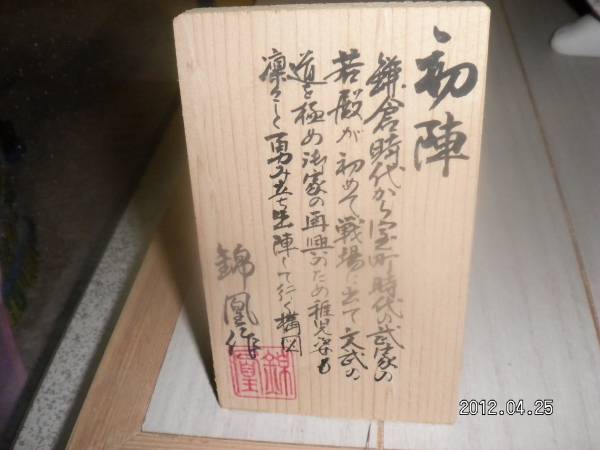 初陣
鎌倉時代から室町時代の武家の
若殿が初めて戦場に出て文武の
道を極め御家の再興のため稚児姿も
凛々しく勇み立ち出陣して行く構図
錦凰作
錦凰
2012.04.25